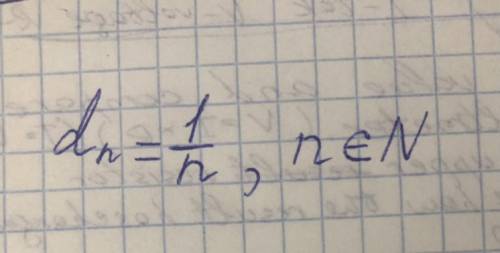 dₙ = 1/n, n ∈ N